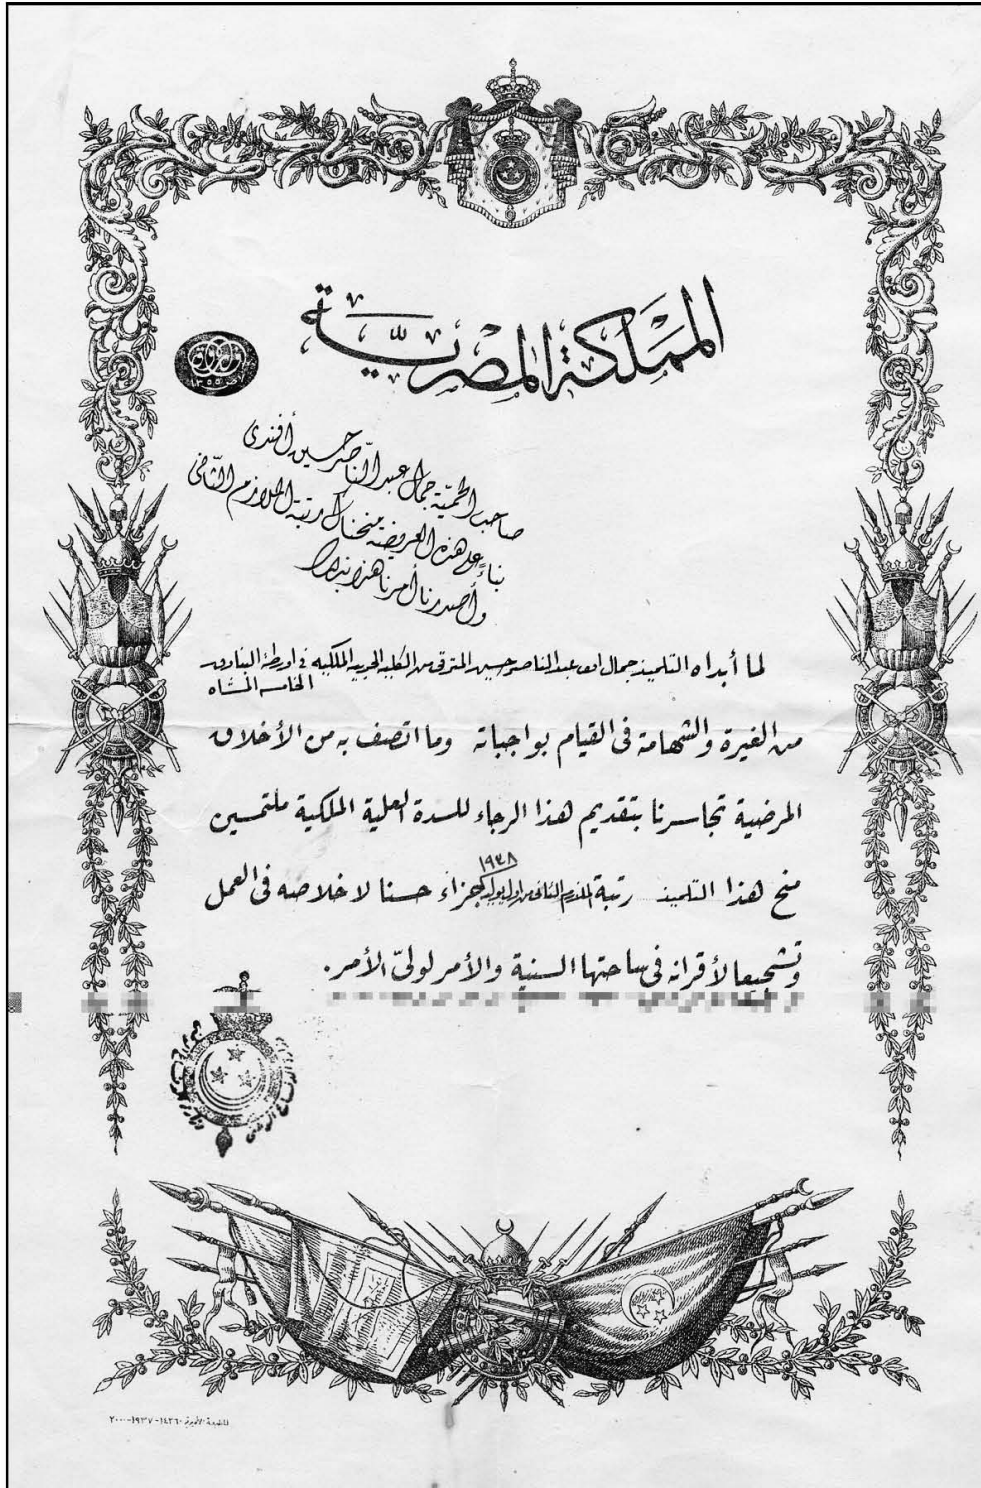 المملكة المصرية
١٣٥٥
صاحب الحمية جمال عبد الناصر حسين أفندى
بناءً على هذه العريضة منحناك رتبة الملازم الثانى
وأصدرنا أمرنا هذا بذلك
لما أبداه التلميذ جمال عبد الناصر حسين المترقى من الكلية الحربية الملكية فى اورطة البنادق
الخامسة المشاه
من الغيرة والشهامة فى القيام بواجباته وما اتصف به من الأخلاق
المرضية تجاسرنا بتقديم هذا الرجاء للسدة العلية الملكية ملتمسين
١٩٣٨
منح هذا التلميذ رتبة الملازم الثانى من اول يوليه كجزاء حسنا لاخلاصه فى العمل
وتشجيعا لأقرانه فى ساحتها السنية والأمر لولىّ الأمر.
المطبعة الأميرية ١٤٣٦٠-١٩٣٧-٢٠٠٠